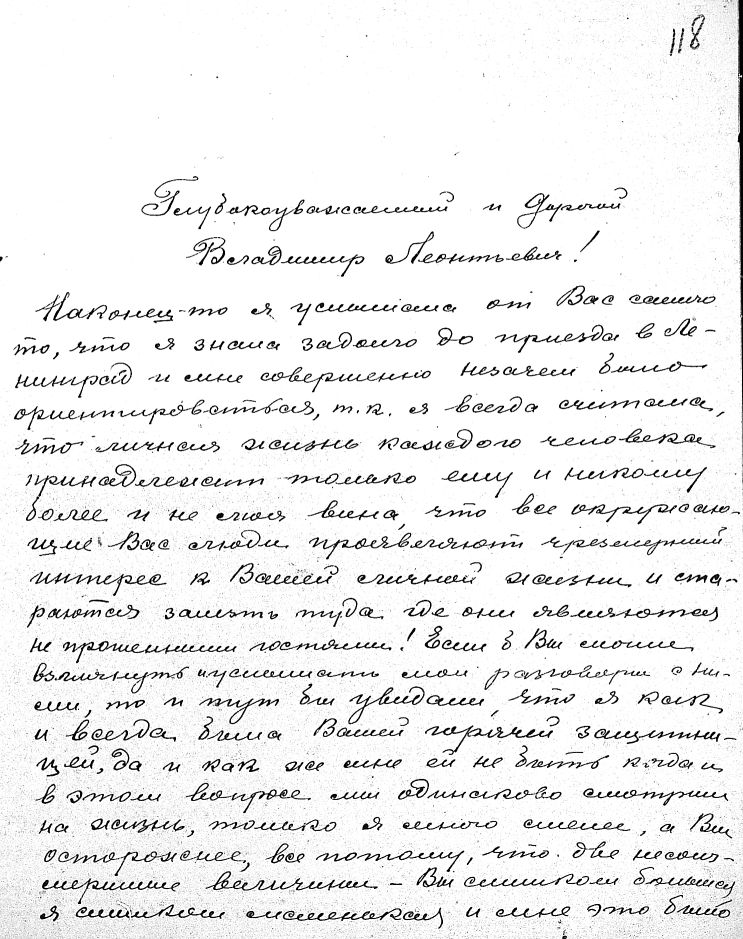 118
Глубокоуважаемый и дорогой
Владимир Леонтьевич!
Наконец-то я услышала от Вас самого
то, что я знала задолго до приезда в Ле-
нинград и мне совершенно незачем было
ориентироваться, т.к. я всегда считала,
что личная жизнь каждого человека
принадлежит только ему и никому
более и не моя вина, что все окружаю-
щие Вас люди проявляют чрезмерный
интерес к Вашей личной жизни и ста-
раются залезть туда где они являются
не прошенными гостями! Если б Вы могли
взглянуть и услышать мои разговоры с ни-
ми, то и тут бы увидали, что я как
и всегда была Вашей горячей защитни-
цей, да и как же мне ей не быть когда и
в этом вопросе мы одинаково смотрим
на жизнь, только я много смелее, а Вы
осторожнее, все потому, что две несоиз-
меримые величины – Вы слишком большой
я слишком маленькая и мне это было